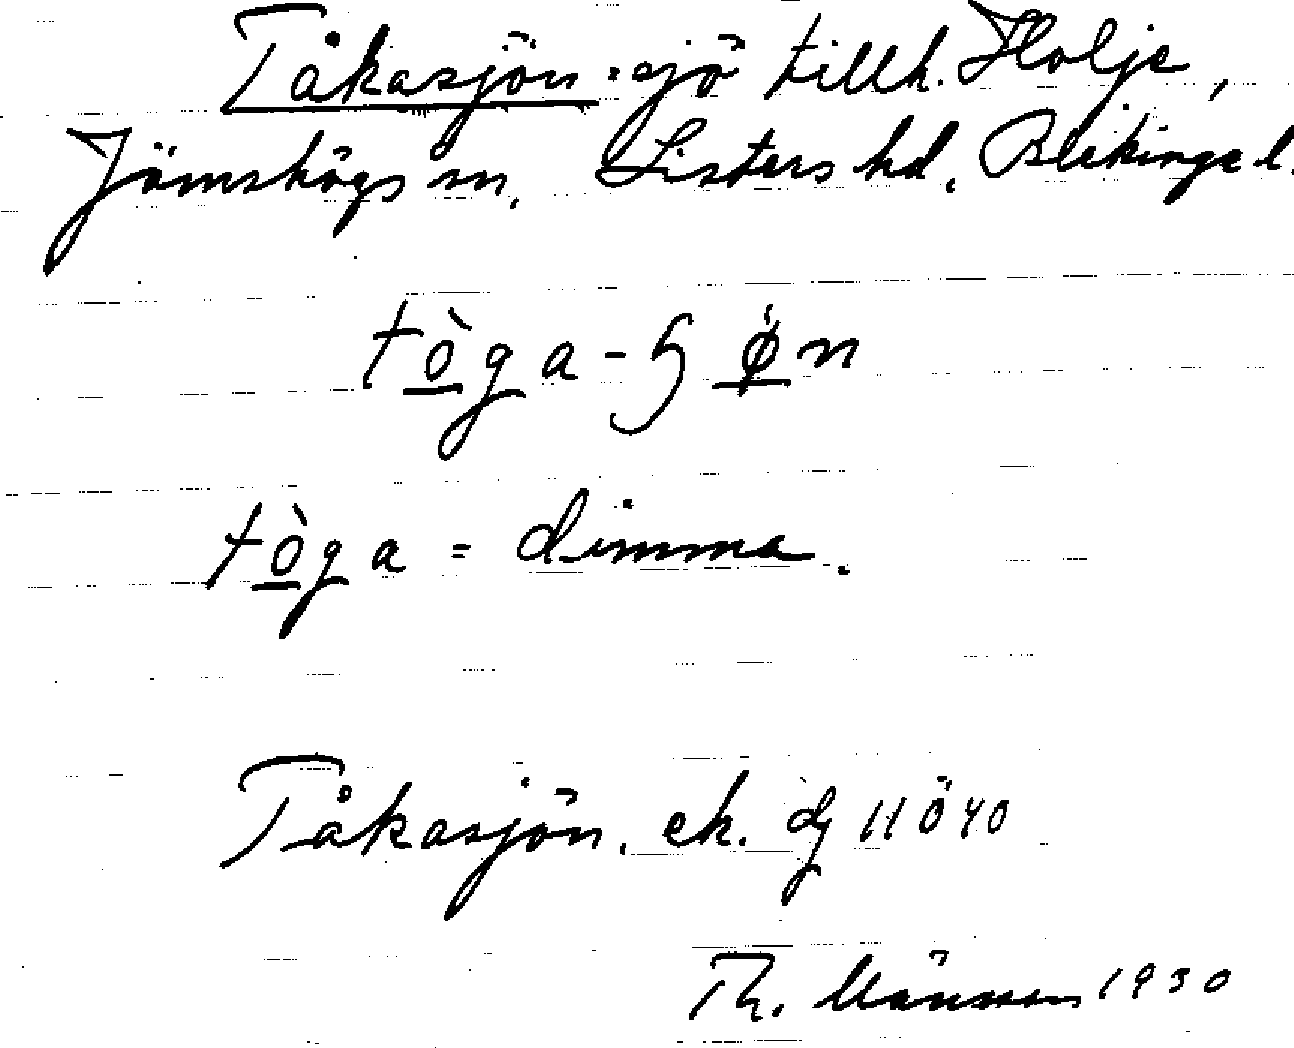 Tåkasjön. sjö tillh. Holje,
Jämshögs sn, Listers hd, Blekinge l.
tòga-ɧøn
tòga = dimma.
Tåkasjön. ek. bl 11 Ö 40
Th. Månsson 1930